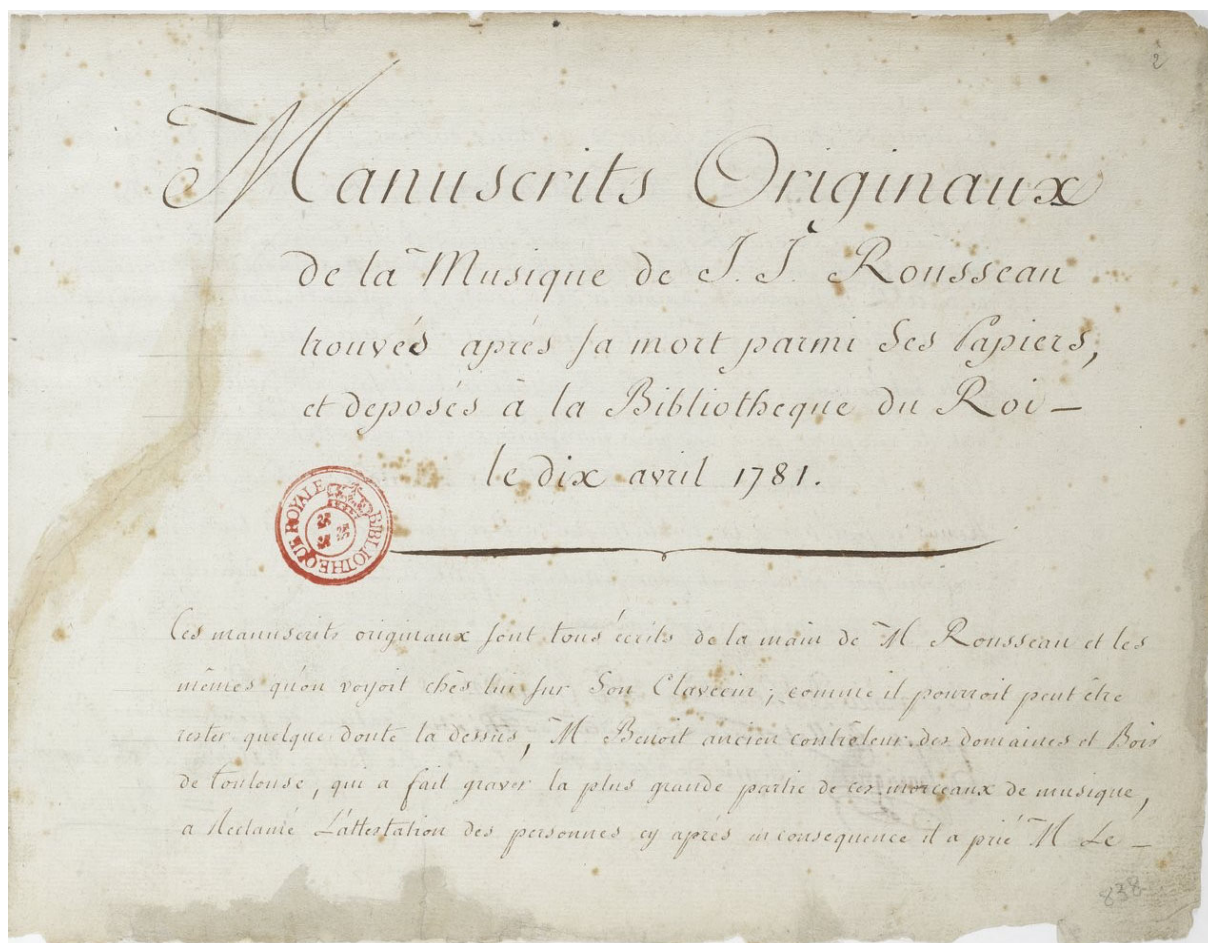 2
Manuscrits Originaux
de la Musique de J. J. Rousseau
trouvés aprés sa mort parmi Ses Papiers,
et deposés à la Bibliotheque du Roi —
le dix avril 1781.
BIBLIOTHEQUE ROYALE
Ces manuscrits originaux sont tous écrits de la main de M. Rousseau et les
mêmes qu'on voyoit chés lui sur Son Clavecin ; comme il pourroit peut être
rester quelque doute la dessus, M Benoit ancien contrôleur des domaines et Bois
de toulouse, qui a fait graver la plus grande partie de ces morceaux de musique,
a Reclamé L'attestation des personnes cy aprés en consequence il a prié M Le —
838